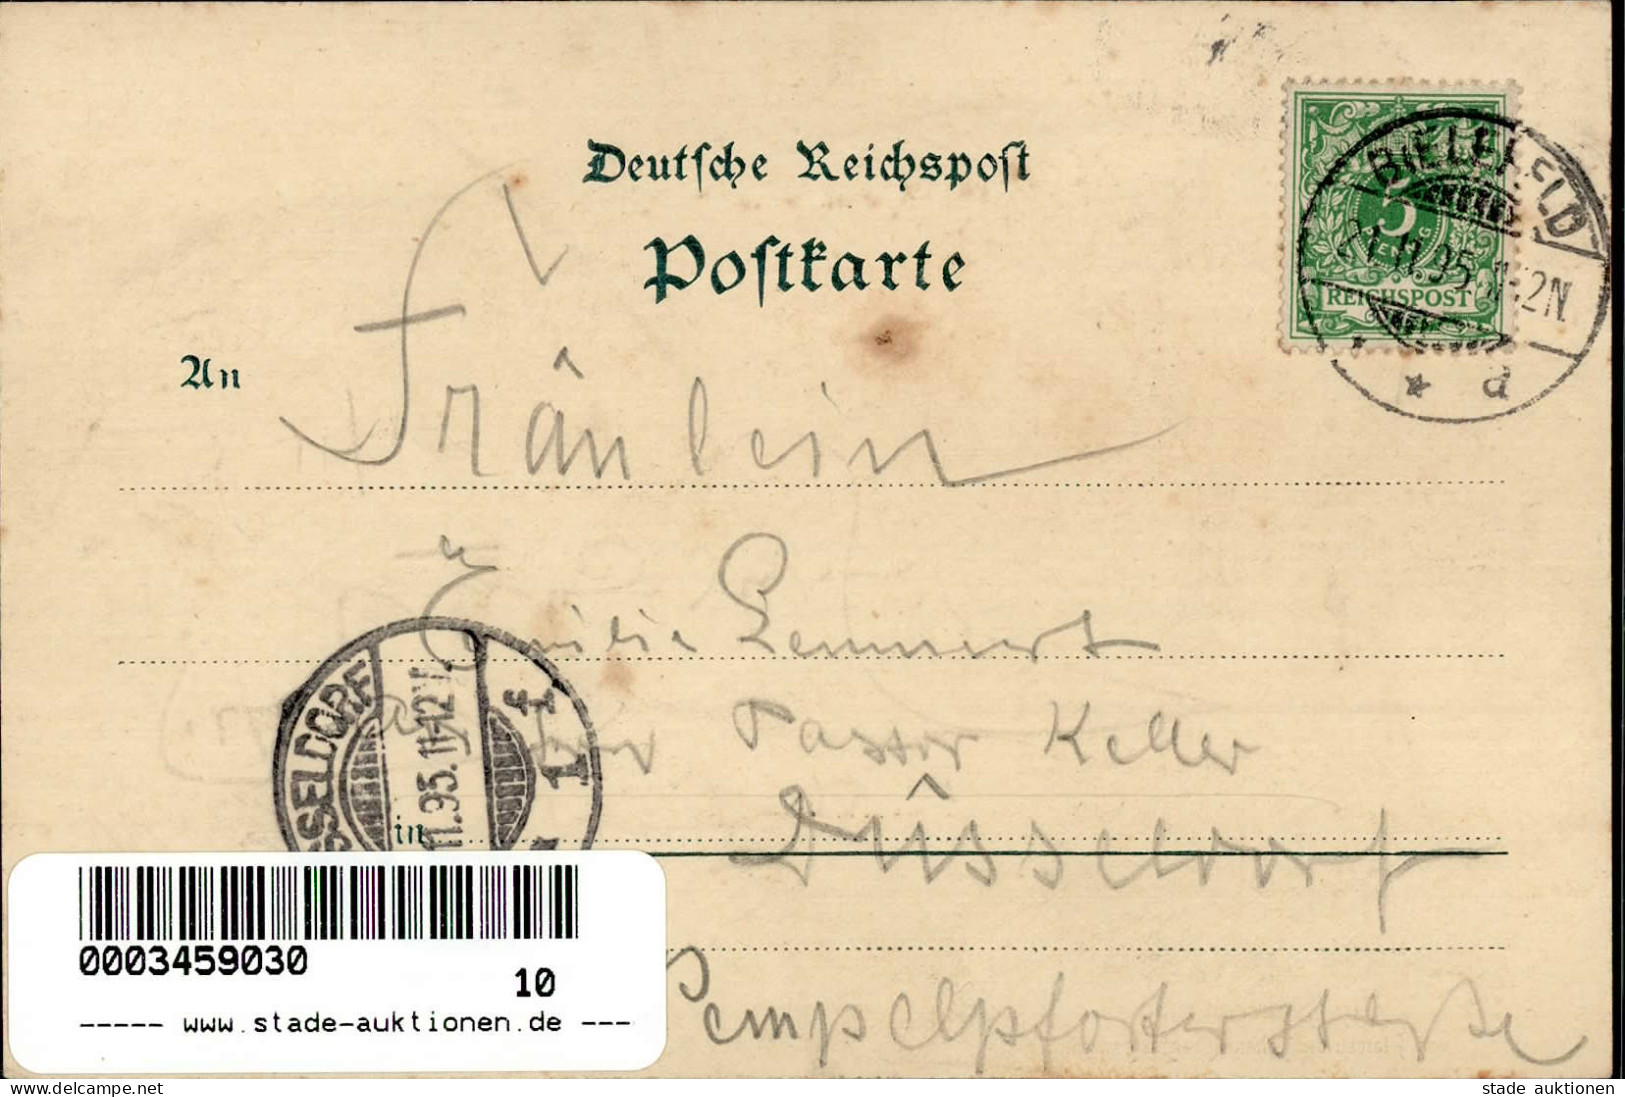 Deutsche Reichspost
Postkarte
An
Fräulein
Emilie Lemmert
Pastor Keller
in
Düsseldorf
Pempelforterstraße
5
PFENNIG
REICHSPOST
BIELEFELD
21.11.95.
2N.
* a
DÜSSELDORF
11.95.11-12V.
1 f
0003459030
10
----- www.stade-auktionen.de ---
stade-auktionen@delcampe.net
stade auktionen